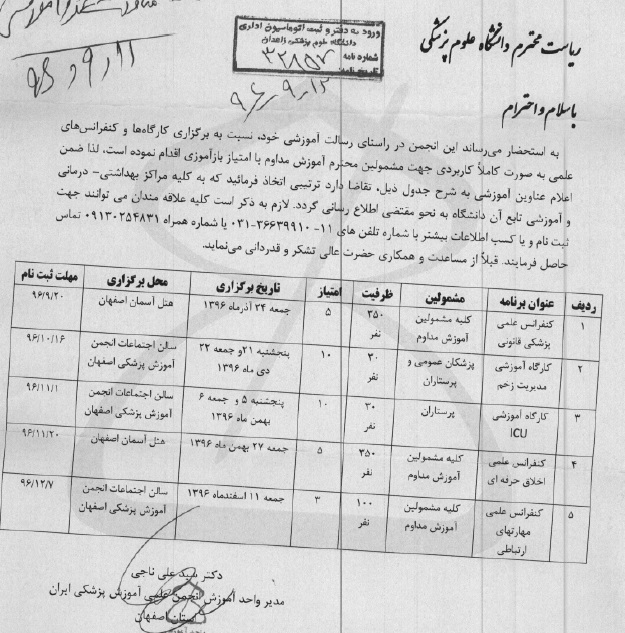 ۹۶/۹/۱۱
ورود به دفتر و ثبت اتوماسیون اداری
دانشگاه علوم پزشکی زاهدان
شماره نامه ۳۲۸۵۷
تاریخ نامه:
۹۶/۹/۱۲
ریاست محترم دانشگاه علوم پزشکی
باسلام و احترام
به استحضار می‌رساند این انجمن در راستای رسالت آموزشی خود، نسبت به برگزاری کارگاه‌ها و کنفرانس‌های
علمی به صورت کاملاً کاربردی جهت مشمولین محترم آموزش مداوم با امتیاز بازآموزی اقدام نموده است. لذا ضمن
اعلام عناوین آموزشی به شرح جدول ذیل، تقاضا دارد ترتیبی اتخاذ فرمائید که به کلیه مراکز بهداشتی- درمانی
و آموزشی تابع آن دانشگاه به نحو مقتضی اطلاع رسانی گردد. لازم به ذکر است کلیه علاقه مندان می توانند جهت
ثبت نام و یا کسب اطلاعات بیشتر با شماره تلفن های ۱۱- ۳۶۶۳۹۹۱۰-۰۳۱ یا شماره همراه ۰۹۱۳۰۲۵۴۸۳۱ تماس
حاصل فرمایند. قبلاً از مساعدت و همکاری حضرت عالی تشکر و قدردانی می‌نماید.
ردیف عنوان برنامه مشمولین ظرفیت امتیاز تاریخ برگزاری محل برگزاری مهلت ثبت نام
۱ کنفرانس علمی پزشکی قانونی کلیه مشمولین آموزش مداوم ۳۵۰ نفر ۵ جمعه ۲۴ آذرماه ۱۳۹۶ هتل آسمان اصفهان ۹۶/۹/۲۰
۲ کارگاه آموزشی مدیریت زخم پزشکان عمومی و پرستاران ۳۰ نفر ۱۰ پنجشنبه ۲۱و جمعه ۲۲ دی ماه ۱۳۹۶ سالن اجتماعات انجمن آموزش پزشکی اصفهان ۹۶/۱۰/۱۶
۳ کارگاه آموزشی ICU پرستاران ۳۰ نفر ۱۰ پنجشنبه ۵ و جمعه ۶ بهمن ماه ۱۳۹۶ سالن اجتماعات انجمن آموزش پزشکی اصفهان ۹۶/۱۱/۱
۴ کنفرانس علمی اخلاق حرفه ای کلیه مشمولین آموزش مداوم ۳۵۰ نفر ۵ جمعه ۲۷ بهمن ماه ۱۳۹۶ هتل آسمان اصفهان ۹۶/۱۱/۲۰
۵ کنفرانس علمی مهارتهای ارتباطی کلیه مشمولین آموزش مداوم ۱۰۰ نفر ۳ جمعه ۱۱ اسفندماه ۱۳۹۶ سالن اجتماعات انجمن آموزش پزشکی اصفهان ۹۶/۱۲/۷
دکتر سید علی ناجی
مدیر واحد آموزش انجمن علمی آموزش پزشکی ایران
استان اصفهان